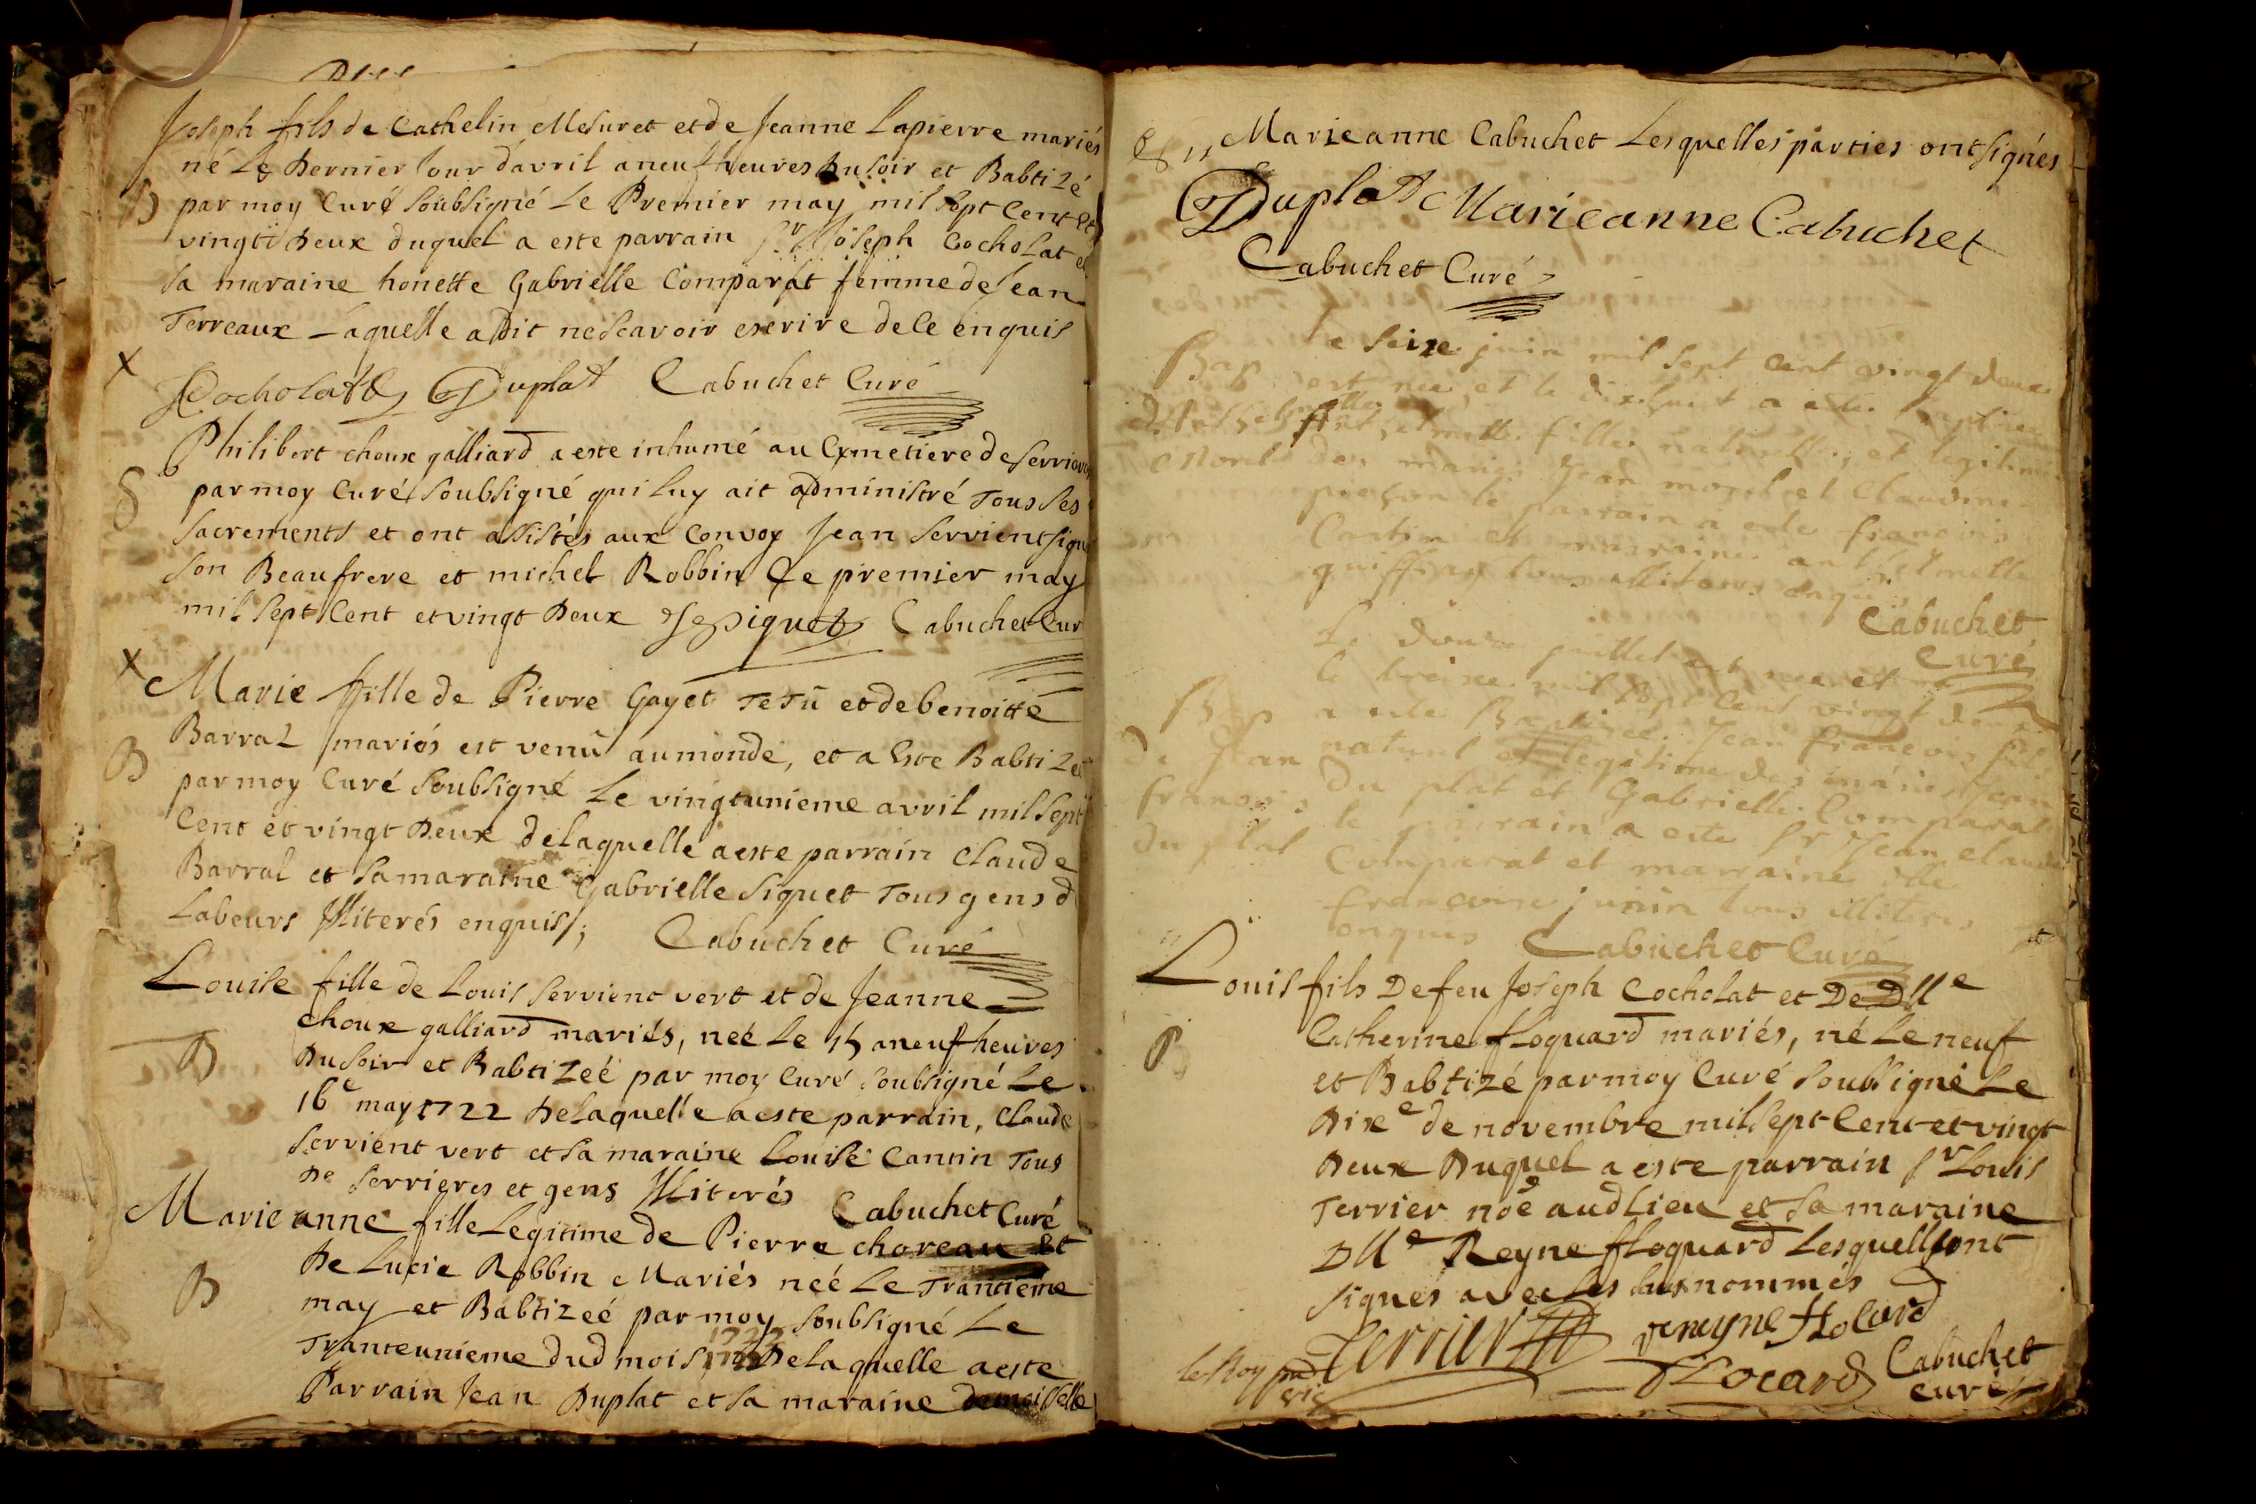 Joseph fils de Cathelin Mesuret et de Jeanne Lapierre mariés
né Le Dernier Jour d'avril a neuf heures Du soir et Babtizé
B par moy Curé soubsigné Le Premier may mil sept Cent et
vingt Deux duquel a este parrain Sr Joseph Cocholat et
sa maraine honette Gabrielle Comparat femme de Jean
Terreaux Laquelle a dit ne scavoir escrire de ce enquis
x
Cocholat Duplat Cabuchet Curé
Philibert choux galliard a este inhumé au Cymetiere de Serrieres
S par moy Curé soubsigné qui luy ait administré Tous ses
sacrements et ont assistés aux Convoy Jean Servient signé
son Beaufrere et michel Robbin Ce premier may
mil sept Cent et vingt Deux Cabuchet Cur
x Marie fille de Pierre Gayet Tetu et de benoitte
Barral mariés est venu au monde, et a Este Babtizeé
B par moy Curé soubsigné Le vingtunieme avril mil sept
Cent et vingt Deux de laquelle a este parrain Claude
Barral et sa maraine Gabrielle Siquet Tous gens d
Labeurs Illiterés enquis; Cabuchet Curé
Louise fille de Louis Servient vert et de Jeanne
choux galliard mariés, neé Le 15 a neuf heures
B Du soir et Babtizeé par moy Curé soubsigné Le
16e may 1722 De Laquelle a este parrain, Claude
Servient vert et sa maraine Louise Cantin Tous
De Serrieres et gens Illiterés Cabuchet Curé
Marieanne fille Legitime de Pierre choreau Et
De Lucie Robbin Mariés neé Le Trantieme
B may et Babtizeé par moy soubsigné Le
Tranteunieme dud mois 1722 De laquelle a este
Parrain Jean Duplat et sa maraine demoiselle
Marieanne Cabuchet Lesquelles parties ont signés
Duplat Marieanne Cabuchet
Cabuchet Curé
Le seize juin mil sept cent vingt deux
Bap est née et le dixhuit a este baptisee
fille naturelle et legitime
Morel des mariés Jean morel et Claudine
le parrain a este francois
Cantin et marraine anthelmette
tous illiteres enquis
Cabuchet
Curé
Le douze juillet est né et
le treize mil sept cent vingt deux
Bap a este Baptisé Jean francois fils
de Jean naturel et legitime des mariés Jean
francois du plat et Gabrielle Comparat
du plat le parrain a este Sr Jean claude
Comparat et marraine dlle
francoise junin tous illiteres
enquis Cabuchet Curé
Louis fils De feu Joseph Cocholat et De Dlle
Catherine floquard mariés, né Le neuf
B et Babtizé par moy Curé soubsigné Le
Dixe de novembre mil sept Cent et vingt
Deux Duquel a este parrain Sr Louis
Terrier noe aud Lieu et sa maraine
Dlle Reyne floquard Lesquells ont
signes avec les susnommés
Terrier reyne flocard
flocard Cabuchet
curé